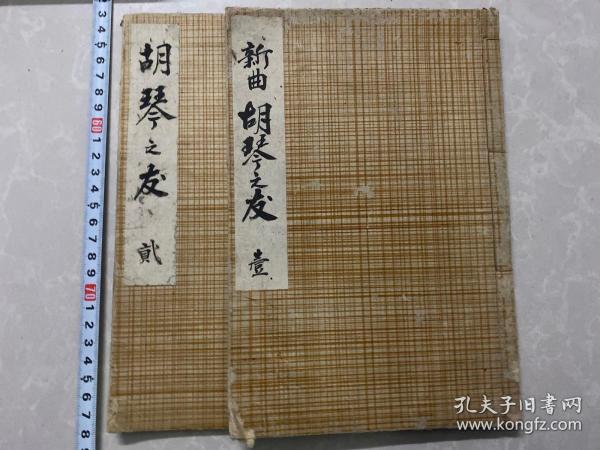 胡琴之友 貳
新曲 胡琴之友 壹
3 4 5 6 7 8 9 60 1 2 3 4 5 6 7 8 9 70 1 2 3 4 5 6 7 8
孔夫子旧书网
www.kongfz.com